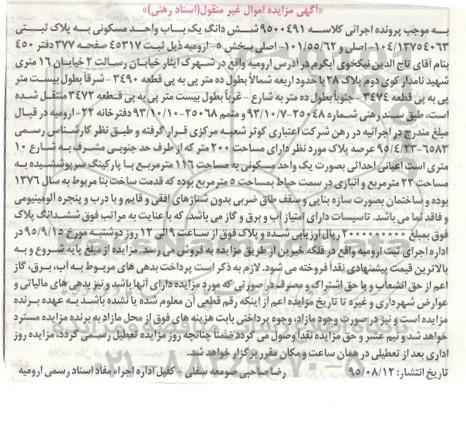 «آگهی مزایده اموال غیر منقول(اسناد رهنی)»
به موجب پرونده اجرائی کلاسه ۹۵۰۰۴۹۱ شش دانگ یک باب واحد مسکونی به پلاک ثبتی
۱۰۴/۱۳۷۵۴۰۶۳- اصلی و ۱۰۱/۵۵/۶۲- اصلی بخش ۵- ارومیه ذیل ثبت ۴۵۳۱۷ صفحه ۳۷۷ دفتر ۴۵۰
بنام آقای تاج الدین نیکخوی ابکرم در آدرس واقع در شهرک ایثار خیابان رسالت ۲ خیابان ۱۶ متری
شهید نامدار کوی دوم پلاک ۲۸ با حدود اربعه شمالاً بطول ده متر پی به پی قطعه ۳۴۹۰- شرقاً بطول بیست متر
پی به پی قطعه ۳۴۷۴- جنوباً بطول ده متر به شارع - غرباً بطول بیست متر پی به پی قطعه ۳۴۷۲ منتقل شده
است، طبق سند رهنی شماره ۳۵۰۴۸-۹۳/۱۰/۷ و متمم ۳۵۰۶۸-۹۳/۱۰/۱۰ دفترخانه ۲۲- ارومیه در قبال
مبلغ مندرج در اجرائیه در رهن شرکت اعتباری کوثر شعبه مرکزی قرار گرفته و طبق نظر کارشناس رسمی
۶۵۸۳-۹۵/۴/۲۳ عرصه پلاک مورد نظر دارای مساحت ۲۰۰ متر که از طرف حد جنوبی مشرف به شارع ۱۰
متری است اعیانی احداثی بصورت یک واحد مسکونی به مساحت ۱۱۶ مترمربع با پارکینگ سرپوشیده به
مساحت ۲۲ مترمربع و انباری در سمت حیاط بمساحت ۵ مترمربع بوده که قدمت ساخت بنا مربوط به سال ۱۳۷۶
بوده و ساختمان بصورت سازه بنایی و سقف طاق ضربی بدون شناژهای افقی و قایم و با درب و پنجره آلومینیومی
و فاقد نما می باشد. تاسیسات دارای امتیاز آب و برق و گاز می باشد. که با عنایت به مراتب فوق ششدانگ پلاک
فوق بمبلغ ۲۰۰۰۰۰۰۰۰۰ ریال ارزیابی شده و پلاک فوق از ساعت ۹ الی ۱۲ روز دوشنبه مورخ ۹۵/۹/۱۵ در
اداره اجرای ثبت ارومیه واقع در فلکه خیرین از طریق مزایده به فروش می رسد. مزایده از مبلغ پایه شروع و به
بالاترین قیمت پیشنهادی نقداً فروخته می شود. لازم به ذکر است پرداخت بدهی های مربوط به آب، برق، گاز
اعم از حق انشعاب و یا حق اشتراک و مصرف در صورتی که مورد مزایده دارای آنها باشد و نیز بدهی های مالیاتی و
عوارض شهرداری و غیره تا تاریخ مزایده اعم از اینکه رقم قطعی آن معلوم شده یا نشده باشد به عهده برنده
مزایده است و نیز در صورت وجود مازاد، وجوه پرداختی بابت هزینه های فوق از محل مازاد به برنده مزایده مسترد
خواهد شد و نیم عشر و حق مزایده نقداً وصول می گردد ضمناً چنانچه روز مزایده تعطیل رسمی گردد، مزایده روز
اداری بعد از تعطیلی در همان ساعت و مکان مقرر برگزار خواهد شد.
تاریخ انتشار: ۹۵/۰۸/۱۲ رضا صاحبی صومعه سفلی - کفیل اداره اجراء مفاد اسناد رسمی ارومیه